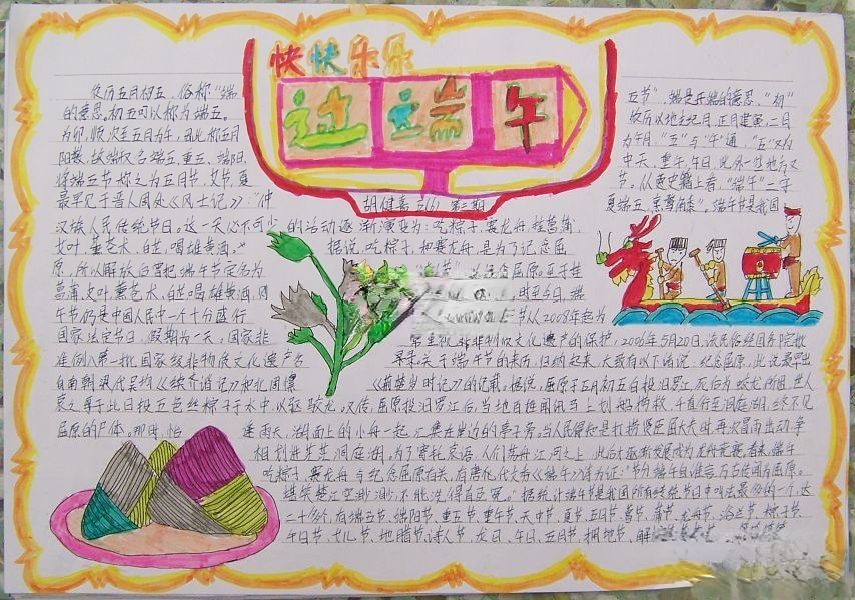 快快乐乐
过端午
胡健嘉 五(6) 第二期
农历五月初五，俗称"端
五节"，端是开端的意思，"初"
的意思。初五可以称为端五。
农历以地支纪月，正月建寅，二月
为卯，顺次至五月为午，因此称五月
为午月，"五"与"午"通，"五"又为
阳数，故端午又名端五、重五、端阳、
中天、重午、午日，此外一些地方又
将端五节称之为五月节、艾节、夏
节。从史籍上看，"端午"二字
最早见于晋人周处《风土记》："仲
夏端五，烹鹜角黍"。端午节是我国
汉族人民传统节日。这一天必不可少
的活动逐渐演变为：吃粽子，赛龙舟，挂菖蒲、
艾叶，薰苍术、白芷，喝雄黄酒。
据说，吃粽子和赛龙舟，是为了纪念屈
原，所以解放后曾把端午节定名为
屈原。至于挂
菖蒲、艾叶，薰苍术、白芷，喝雄黄酒，则
时至今日，端
午节仍是中国人民中一个十分盛行
节从2008年起为
国家法定节日，假期为一天。国家非
常重视非物质文化遗产的保护，2006年5月20日，该民俗经国务院批
准列入第一批国家级非物质文化遗产名
录。关于端午节的来历，归纳起来，大致有以下诸说：纪念屈原，此说最早出
自南朝梁代吴均《续齐谐记》和北周
《荆楚岁时记》的记载。据说，屈原于五月初五自投汨罗江，死后为蛟龙所困，世人
哀之，每于此日投五色丝粽子于水中，以驱蛟龙。又传，屈原投汨罗江后，当地百姓闻讯马上划船捞救，一直行至洞庭湖，终不见
屈原的尸体。那时，恰
逢雨天，湖面上的小舟一起汇集在岸边的亭子旁。当人民得知是打捞贤臣屈大夫时，再次冒雨出动，争
相划进茫茫洞庭湖。为了寄托哀思，人们荡舟江河之上，此后才逐渐发展成为龙舟竞赛。看来，端午
吃粽子、赛龙舟与纪念屈原相关，有唐代文秀《端午》诗为证："节分端午自谁言，万古传闻为屈原。
堪笑楚江空渺渺，不能洗得直臣冤。"据统计端午节是我国所有传统节日中叫法最多的一个，达
二十多个，有端五节、端阳节、重五节、重午节、天中节、夏节、五月节、菖节、蒲节、龙舟节、浴兰节、粽子节
午日节、女儿节、地腊节、诗人节、龙日、午日、五日节、